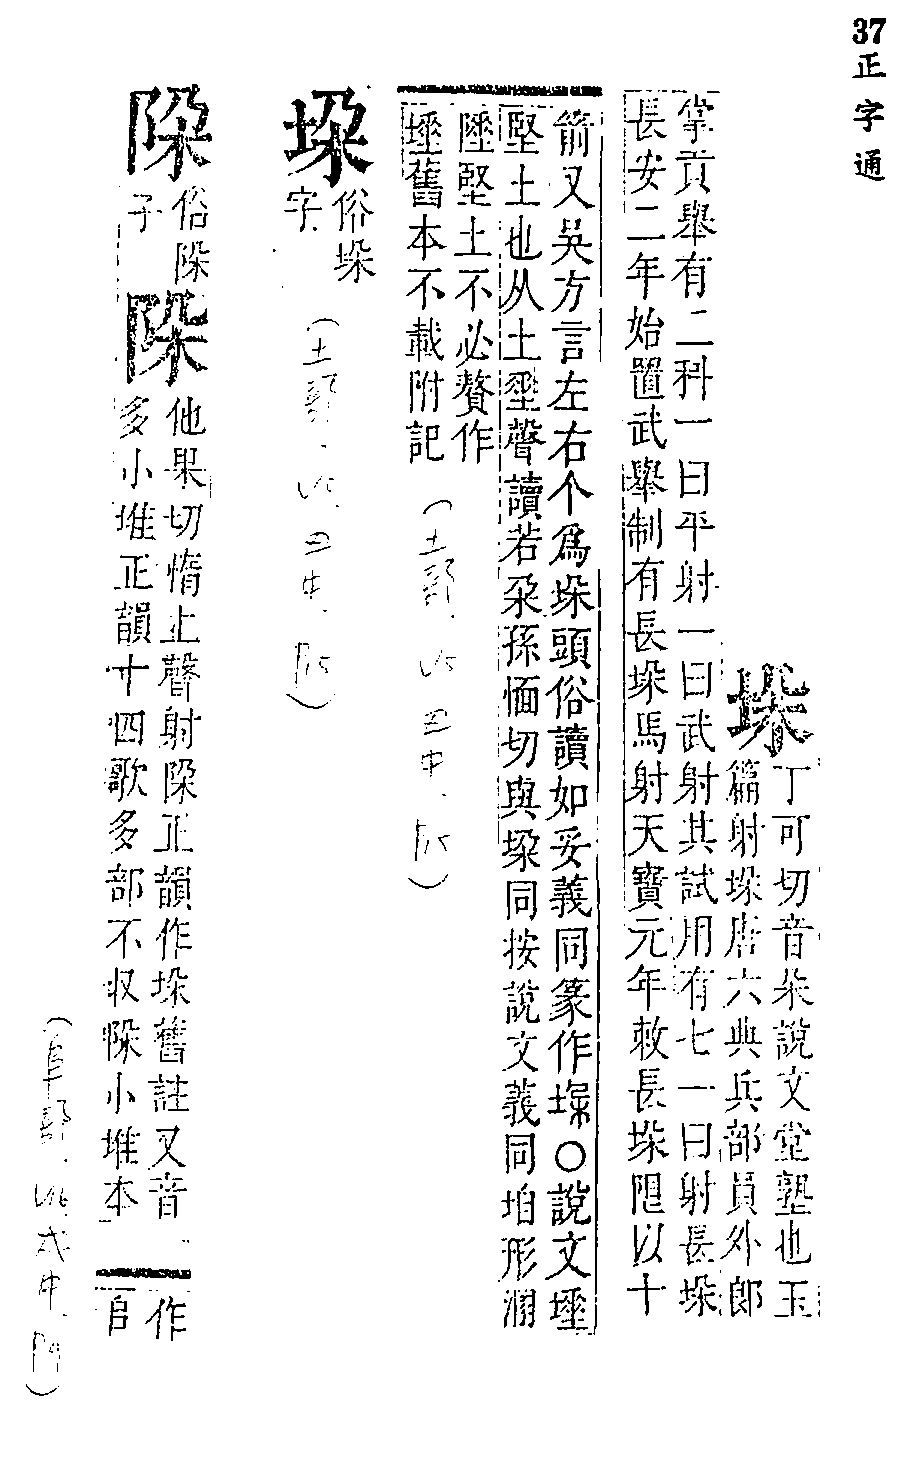 37 正字通
垛
丁可切音朵說文堂塾也玉
篇射垛唐六典兵部員外郎
掌貢舉有二科一曰平射一曰武射其試用有七一曰射長垛
長安二年始置武舉制有長垛馬射天寶元年敕長垛限以十
箭又吳方言左右个為垛頭俗讀如妥義同篆作垛〇說文㙐
堅土也从土聲讀若朶孫愐切與垜同按說文義同形溷
堅土不必贅作
舊本不載附記
(土部、 丑中、
垜
俗垛
字
(土部、 丑中、
陊
俗陎
子
他果切惰上聲射正韻作垛舊註又音
多小堆正韻十四歌多部不収小堆本
作
𨸏
(阜部、 戌中、